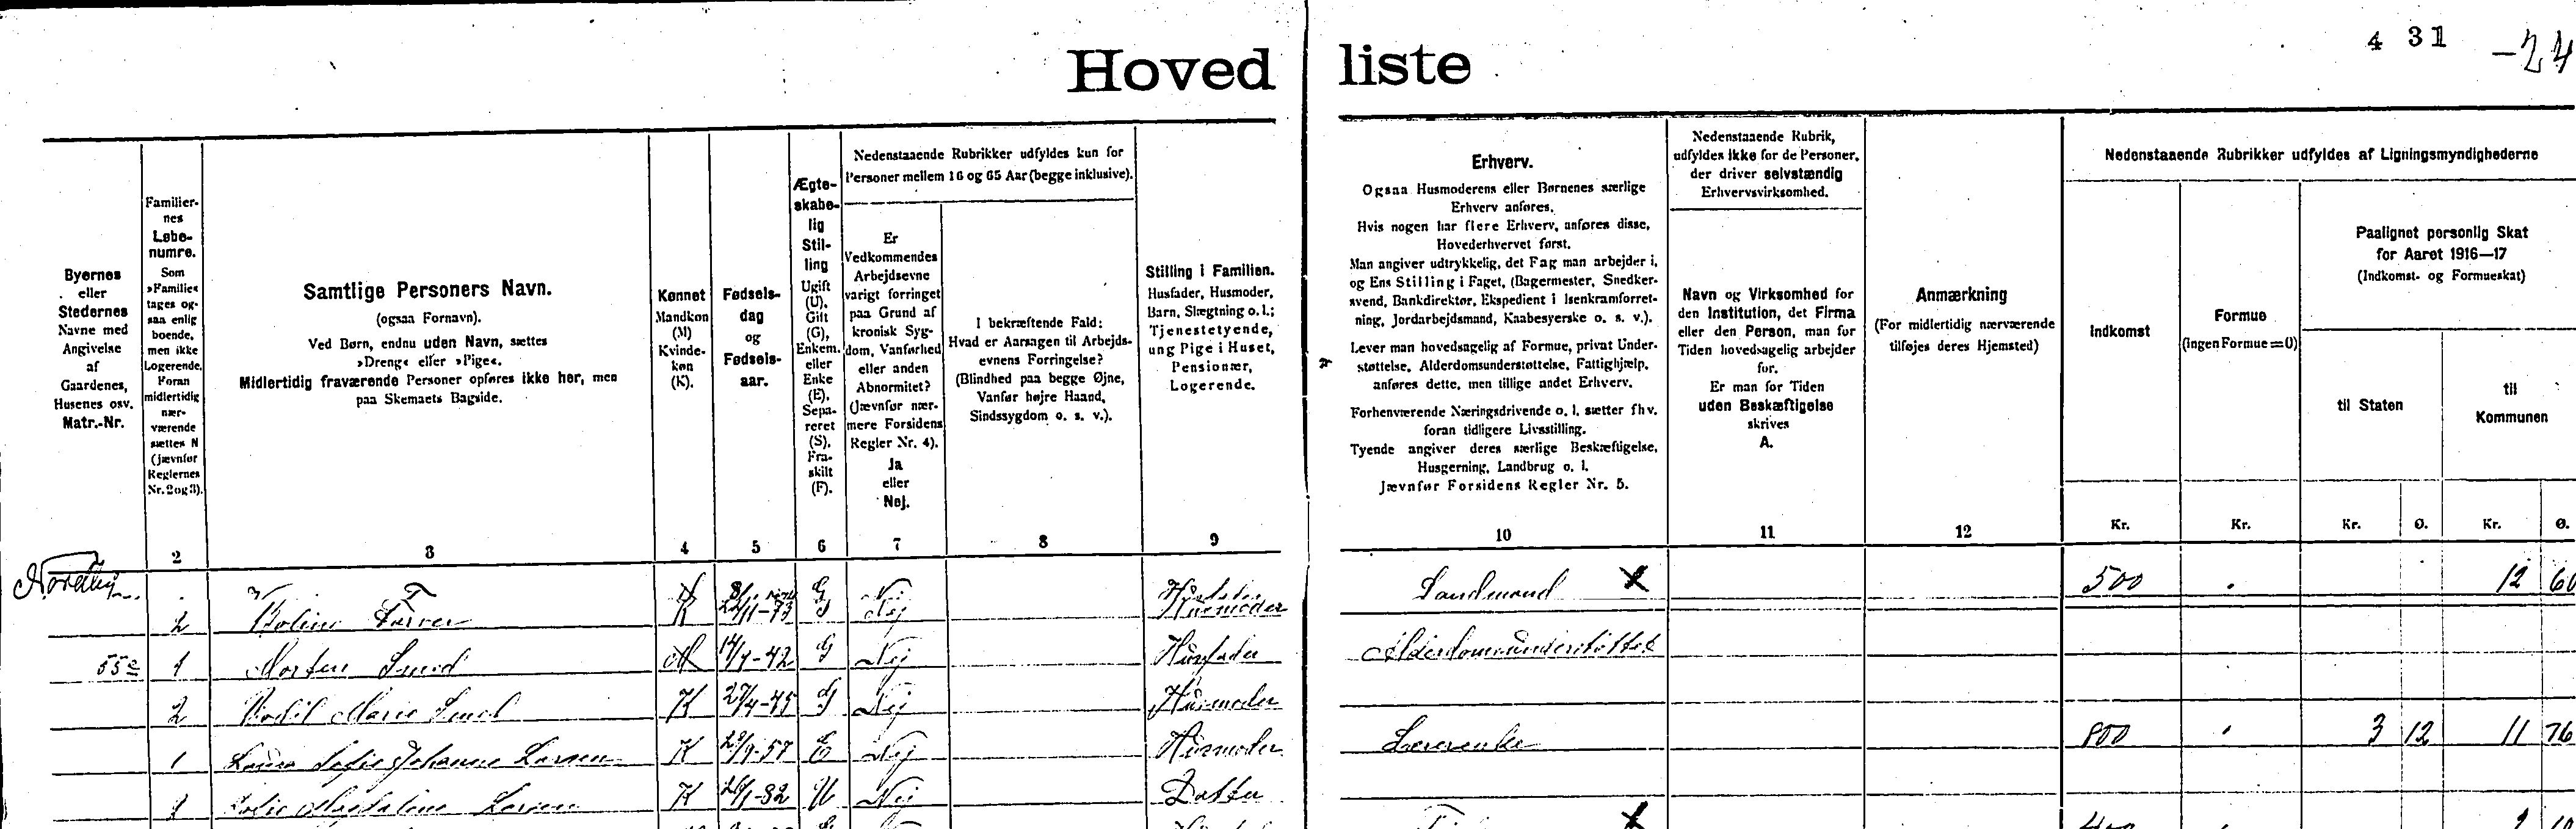 4 31 -24
Hoved liste
Byernes
eller
Stedernes
Navne med
Angivelse
af
Gaardenes,
Husenes osv.
Matr.-Nr.
Familier-
nes
Løbe-
numre.
Som
»Familie«
tages og-
saa enlig
boende,
men ikke
Logerende.
Foran
midlertidig
nær-
værende
sættes N
(jævnfør
Reglernes
Nr. 2 og 3).
2
Samtlige Personers Navn.
(ogsaa Fornavn).
Ved Børn, endnu uden Navn, sættes
»Dreng« eller »Pige«.
Midlertidig fraværende Personer opføres ikke her, men
paa Skemaets Bagside.
3
Kønnet
Mandkøn
(M)
Kvinde-
køn
(K).
4
Fødsels-
dag
og
Fødsels-
aar.
5
Ægte-
skabe-
lig
Stil-
ling
Ugift
(U),
Gift
(G),
Enkem.
eller
Enke
(E),
Sepa-
reret
(S),
Fra-
skilt
(F).
6
Nedenstaaende Rubrikker udfyldes kun for
Personer mellem 16 og 65 Aar (begge inklusive).
Er
Vedkommendes
Arbejdsevne
varigt forringet
paa Grund af
kronisk Syg-
dom, Vanførhed
eller anden
Abnormitet?
(Jævnfør nær-
mere Forsidens
Regler Nr. 4).
Ja
eller
Nej.
7
I bekræftende Fald:
Hvad er Aarsagen til Arbejds-
evnens Forringelse?
(Blindhed paa begge Øjne,
Vanfør højre Haand,
Sindssygdom o. s. v.).
8
Stilling i Familien.
Husfader, Husmoder,
Barn, Slægtning o. l.;
Tjenestetyende,
ung Pige i Huset,
Pensionær,
Logerende.
9
Erhverv.
Ogsaa Husmoderens eller Børnenes særlige
Erhverv anføres.
Hvis nogen har flere Erhverv, anføres disse,
Hovederhvervet først.
Man angiver udtrykkelig, det Fag man arbejder i,
og Ens Stilling i Faget, (Bagermester, Snedker-
svend, Bankdirektør, Ekspedient i Isenkramforret-
ning, Jordarbejdsmand, Kaabesyerske o. s. v.).
Lever man hovedsagelig af Formue, privat Under-
støttelse, Alderdomsunderstøttelse, Fattighjælp,
anføres dette, men tillige andet Erhverv.
Forhenværende Næringsdrivende o. l. sætter fhv.
foran tidligere Livsstilling.
Tyende angiver deres særlige Beskæftigelse,
Husgerning, Landbrug o. l.
Jævnfør Forsidens Regler Nr. 5.
10
Nedenstaaende Rubrik,
udfyldes ikke for de Personer,
der driver selvstændig
Erhvervsvirksomhed.
Navn og Virksomhed for
den Institution, det Firma
eller den Person, man for
Tiden hovedsagelig arbejder
for.
Er man for Tiden
uden Beskæftigelse
skrives
A.
11
Anmærkning
(For midlertidig nærværende
tilføjes deres Hjemsted)
12
Nedenstaaende Rubrikker udfyldes af Ligningsmyndighederne
Indkomst
Kr.
Formue
(ingen Formue = 0)
Kr.
Paalignet personlig Skat
for Aaret 1916—17
(Indkomst- og Formueskat)
til Staten
Kr. Ø.
til
Kommunen
Kr. Ø.
Nordby G Nej Landmand X 500 12 60
2 K 22/11-73 G Nej Husmoder
55c 1 Morten Smed M 14/7-42 G Nej Husfader Alderdomsunderstøttet
2 Bodil Marie Smed K 27/4-45 G Nej Husmoder
1 Laura Sofie Johanne Larsen K 29/9-57 E Nej Husmoder Lærerenke 800 3 12 11 76
1 Larsen K 26/1-82 U Nej Datter
X